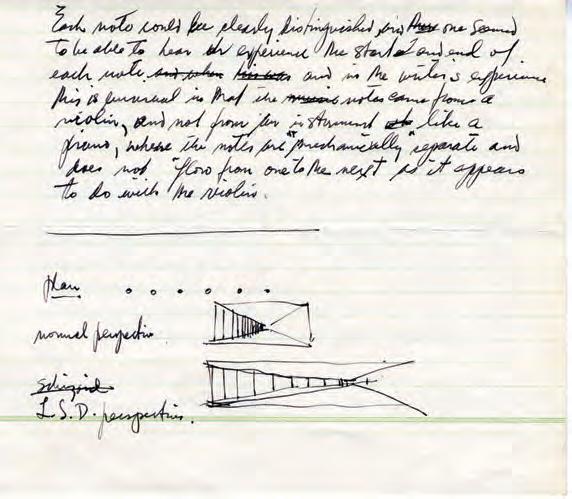 Each note could be clearly distinguished and one seemed
to be able to hear or experience the start and end of
each note and when this was and in the writer's experience
this is unusual in that the music notes came from a
violin, and not from an instrument like a
piano, where the notes are "mechanically" separate and
does not "flow from one to the next" as it appears
to do with the violin.
plan
normal perspective.
Schizoid
L.S.D. perspective.